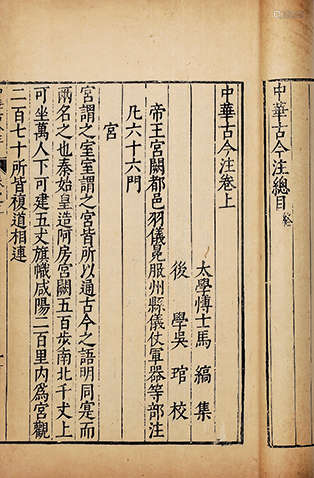 中華古今注總目終
中華古今注卷上
太學博士馬縞集
後學吳琯校
帝王宮闕都邑羽儀冕服州縣儀仗軍器等部注
凡六十六門
宮
宮謂之室室謂之宮皆所以通古今之語明同寔而
兩名之也秦始皇造阿房宮闕五百步南北千丈上
可坐萬人下可建五丈旗幟咸陽二百里內為宮觀
二百七十所皆複道相連